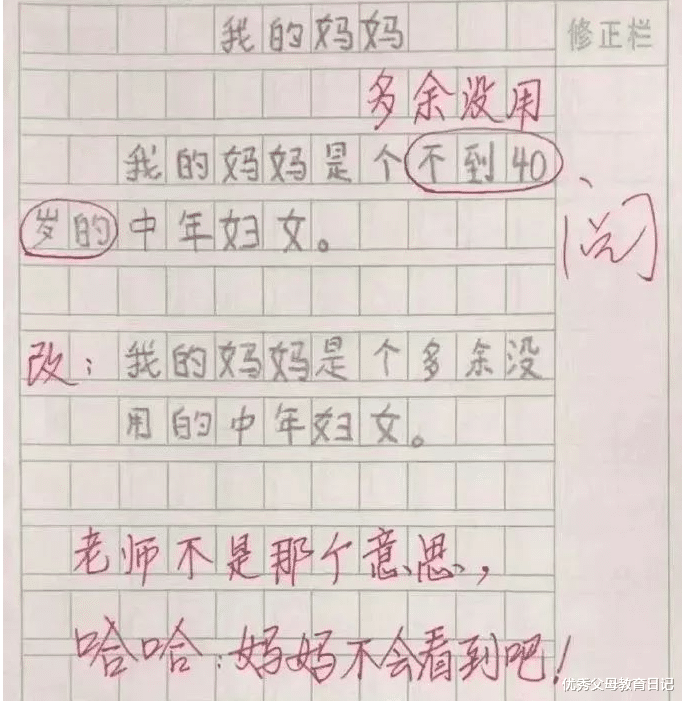 我的妈妈
修正栏
多余没用
我的妈妈是个不到40
岁的中年妇女。
阅
改：我的妈妈是个多余没
用的中年妇女。
老师不是那个意思，
哈哈：妈妈不会看到吧！
优秀父母教育日记